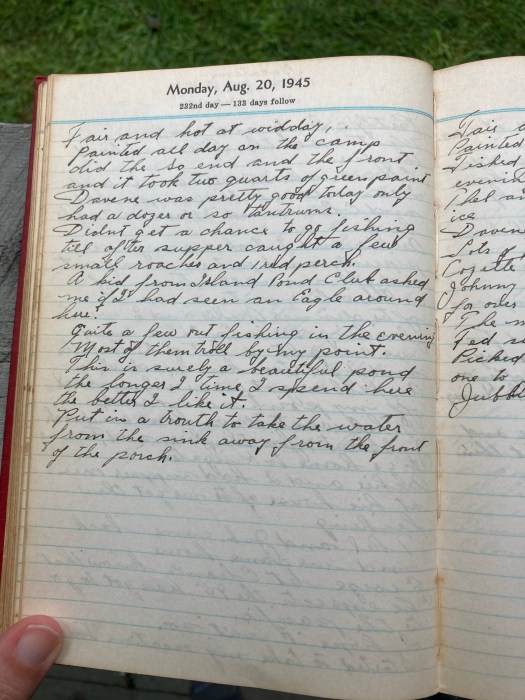 Monday, Aug. 20, 1945
232nd day — 133 days follow
Fair and hot at midday,
Painted all day on the camp
did the So end and the front
and it took two quarts of green paint
Davene was pretty good today only
had a dozer or so tantrums.
Didnt get a chance to go fishing
till after supper caught a few
small roaches and 1 red perch.
A kid from Island Pond Club asked
me if I had seen an Eagle around
here?
Quite a few out fishing in the evening
Most of them troll by my point.
This is surely a beautiful pond
the longer I time I spend here
the better I like it.
Put in a trouth to take the water
from the sink away from the front
of the porch.
Fair
Painted
Fished
evenin
ice
Daven
Lots of
Cozette
Johnny
for over
The
Picked
one to